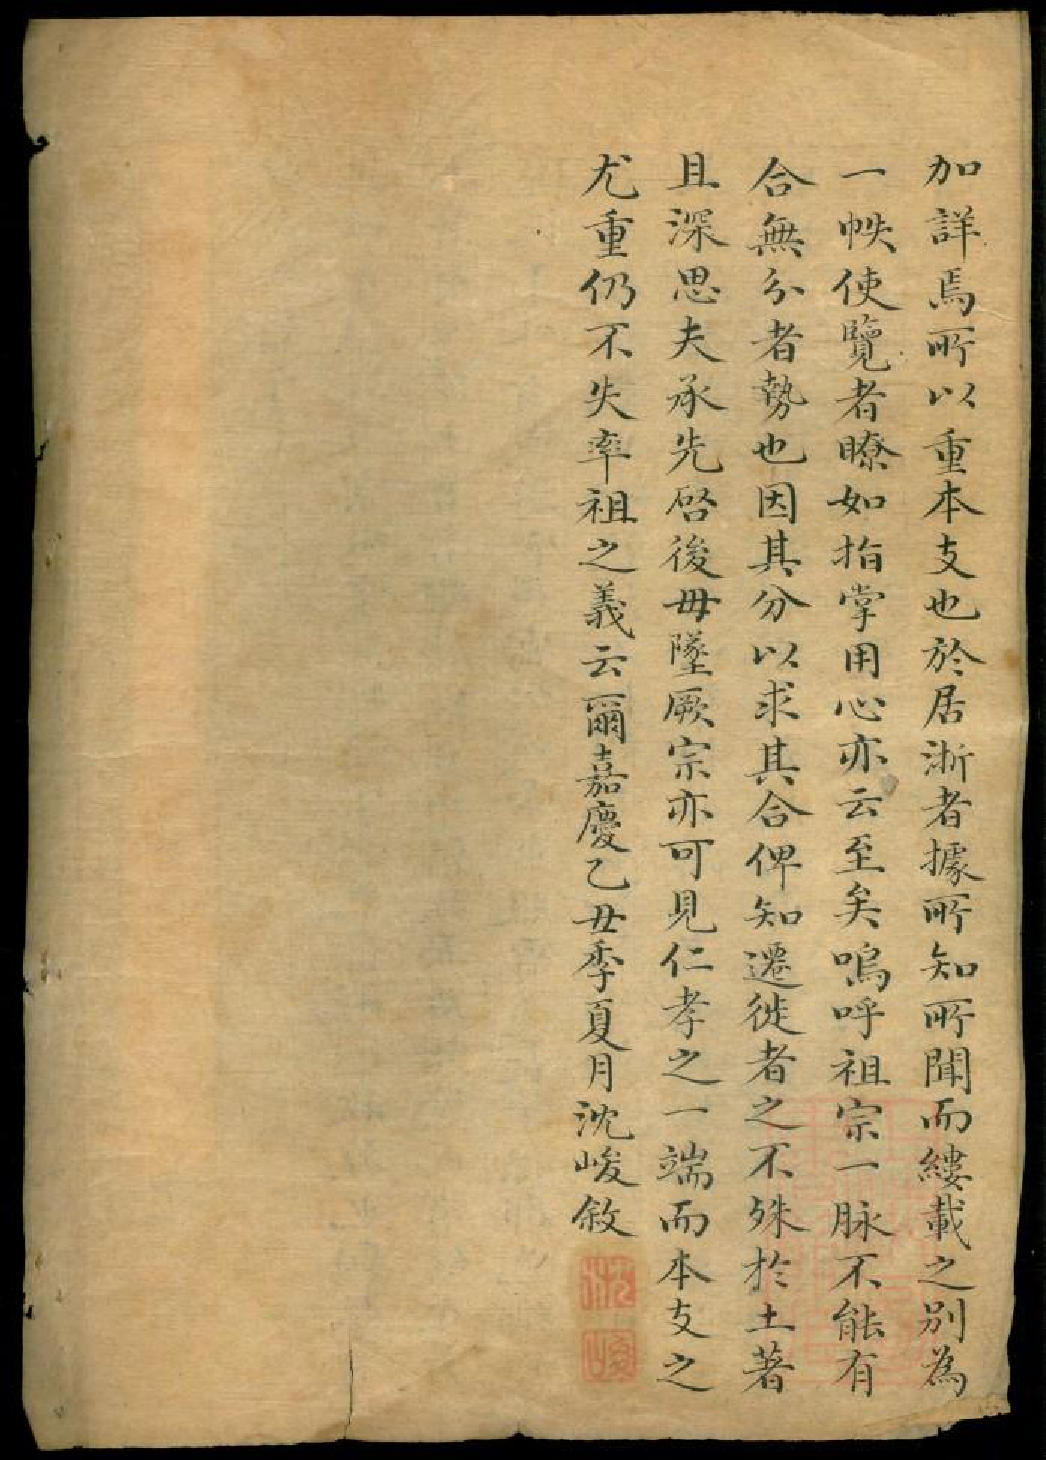 加詳焉所以重本支也於居浙者據所知所聞而縷載之別為
一帙使覽者瞭如指掌用心亦云至矣嗚呼祖宗一脉不能有
合無分者勢也因其分以求其合俾知遷徙者之不殊於土著
且深思夫承先啓後毋墜厥宗亦可見仁孝之一端而本支之
尤重仍不失率祖之義云爾嘉慶乙丑季夏月沈峻敘
沈
峻